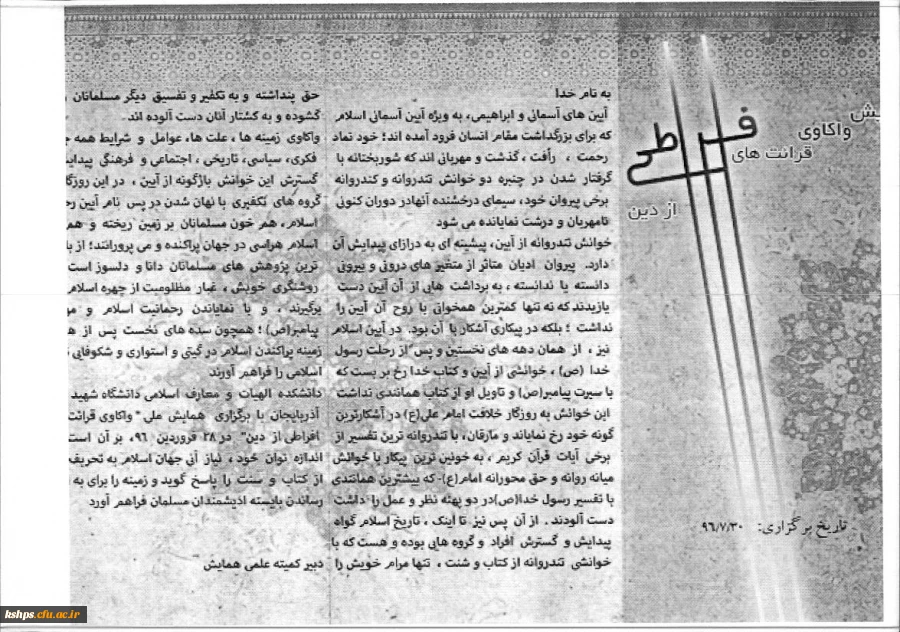 به نام خدا
آیین های آسمانی و ابراهیمی، به ویژه آیین آسمانی اسلام
که برای بزرگداشت مقام انسان فرود آمده اند؛ خود نماد
رحمت ، رأفت ، گذشت و مهربانی اند که شوربختانه با
گرفتار شدن در چنبره دو خوانش تندروانه و کندروانه
برخی پیروان خود، سیمای درخشنده آنهادر دوران کنونی
نامهربان و درشت نمایانده می شود
خوانش تندروانه از آیین، پیشینه ای به درازای پیدایش آن
دارد. پیروان ادیان متاثر از متغیر های درونی و بیرونی
دانسته یا ندانسته ، به برداشت هایی از آن آیین دست
یازیدند که نه تنها کمترین همخوانی با روح آن آیین را
نداشت ؛ بلکه در پیکاری آشکار با آن بود. در آیین اسلام
نیز ، از همان دهه های نخستین و پس از رحلت رسول
خدا (ص) ، خوانشی از آیین و کتاب خدا رخ بر بست که
با سیرت پیامبر(ص) و تاویل او از کتاب همانندی نداشت
این خوانش به روزگار خلافت امام علی(ع) در آشکارترین
گونه خود رخ نمایاند و مارقان، با تندروانه ترین تفسیر از
برخی آیات قرآن کریم ، به خونین ترین پیکار با خوانش
میانه روانه و حق محورانه امام(ع)-که بیشترین همانندی
با تفسیر رسول خدا(ص)در دو پهنه نظر و عمل را داشت
دست آلودند . از آن پس نیز تا اینک ، تاریخ اسلام گواه
پیدایش و گسترش افراد و گروه هایی بوده و هست که با
خوانشی تندروانه از کتاب و سنت ، تنها مرام خویش را
حق پنداشته و به تکفیر و تفسیق دیگر مسلمانان
گشوده و به کشتار آنان دست آلوده اند-
واکاوی زمینه ها ، علت ها، عوامل و شرایط همه
فکری، سیاسی، تاریخی ، اجتماعی و فرهنگی
گسترش این خوانش باژگونه از آیین ، در این
گروه های تکفیری با نهان شدن در پس نام آیین
اسلام، هم خون مسلمانان بر زمین ریخته و هم
اسلام هراسی در جهان پراکنده و می پرورانند؛ از
ترین پژوهش های مسلمانان دانا و دلسوز است
روشنگری خویش ، غبار مظلومیت از چهره اسلام
برگیرند ، و با نمایاندن رحمانیت اسلام و
پیامبر(ص) ؛ همچون سده های نخست پس از
زمینه پراکندن اسلام در گیتی و استواری و شکوفایی
اسلامی را فراهم آورند
دانشکده الهیات و معارف اسلامی دانشگاه شهید
آذربایجان با برگزاری همایش ملی " واکاوی قرائت
افراطی از دین" در ۲۸ فروردین ۹۶، بر آن است
اندازه توان خود ، نیاز آنی جهان اسلام به
از کتاب و سنت را پاسخ گوید و زمینه را برای به
رساندن بایسته اندیشمندان مسلمان فراهم آورد
دبیر کمیته علمی همایش
واکاوی
قرائت های
افراطی
از دین
تاریخ برگزاری: ۹۶/۷/۳۰
kshps.cfu.ac.ir